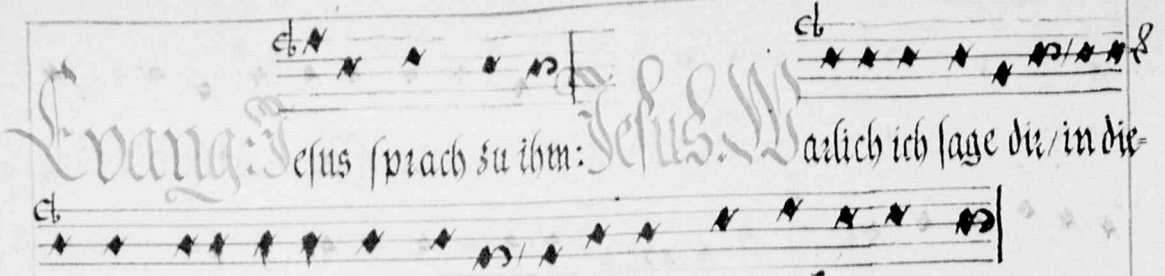 Evang: Jesus sprach zu ihm: Jesus. Warlich ich sage dir/ in die=